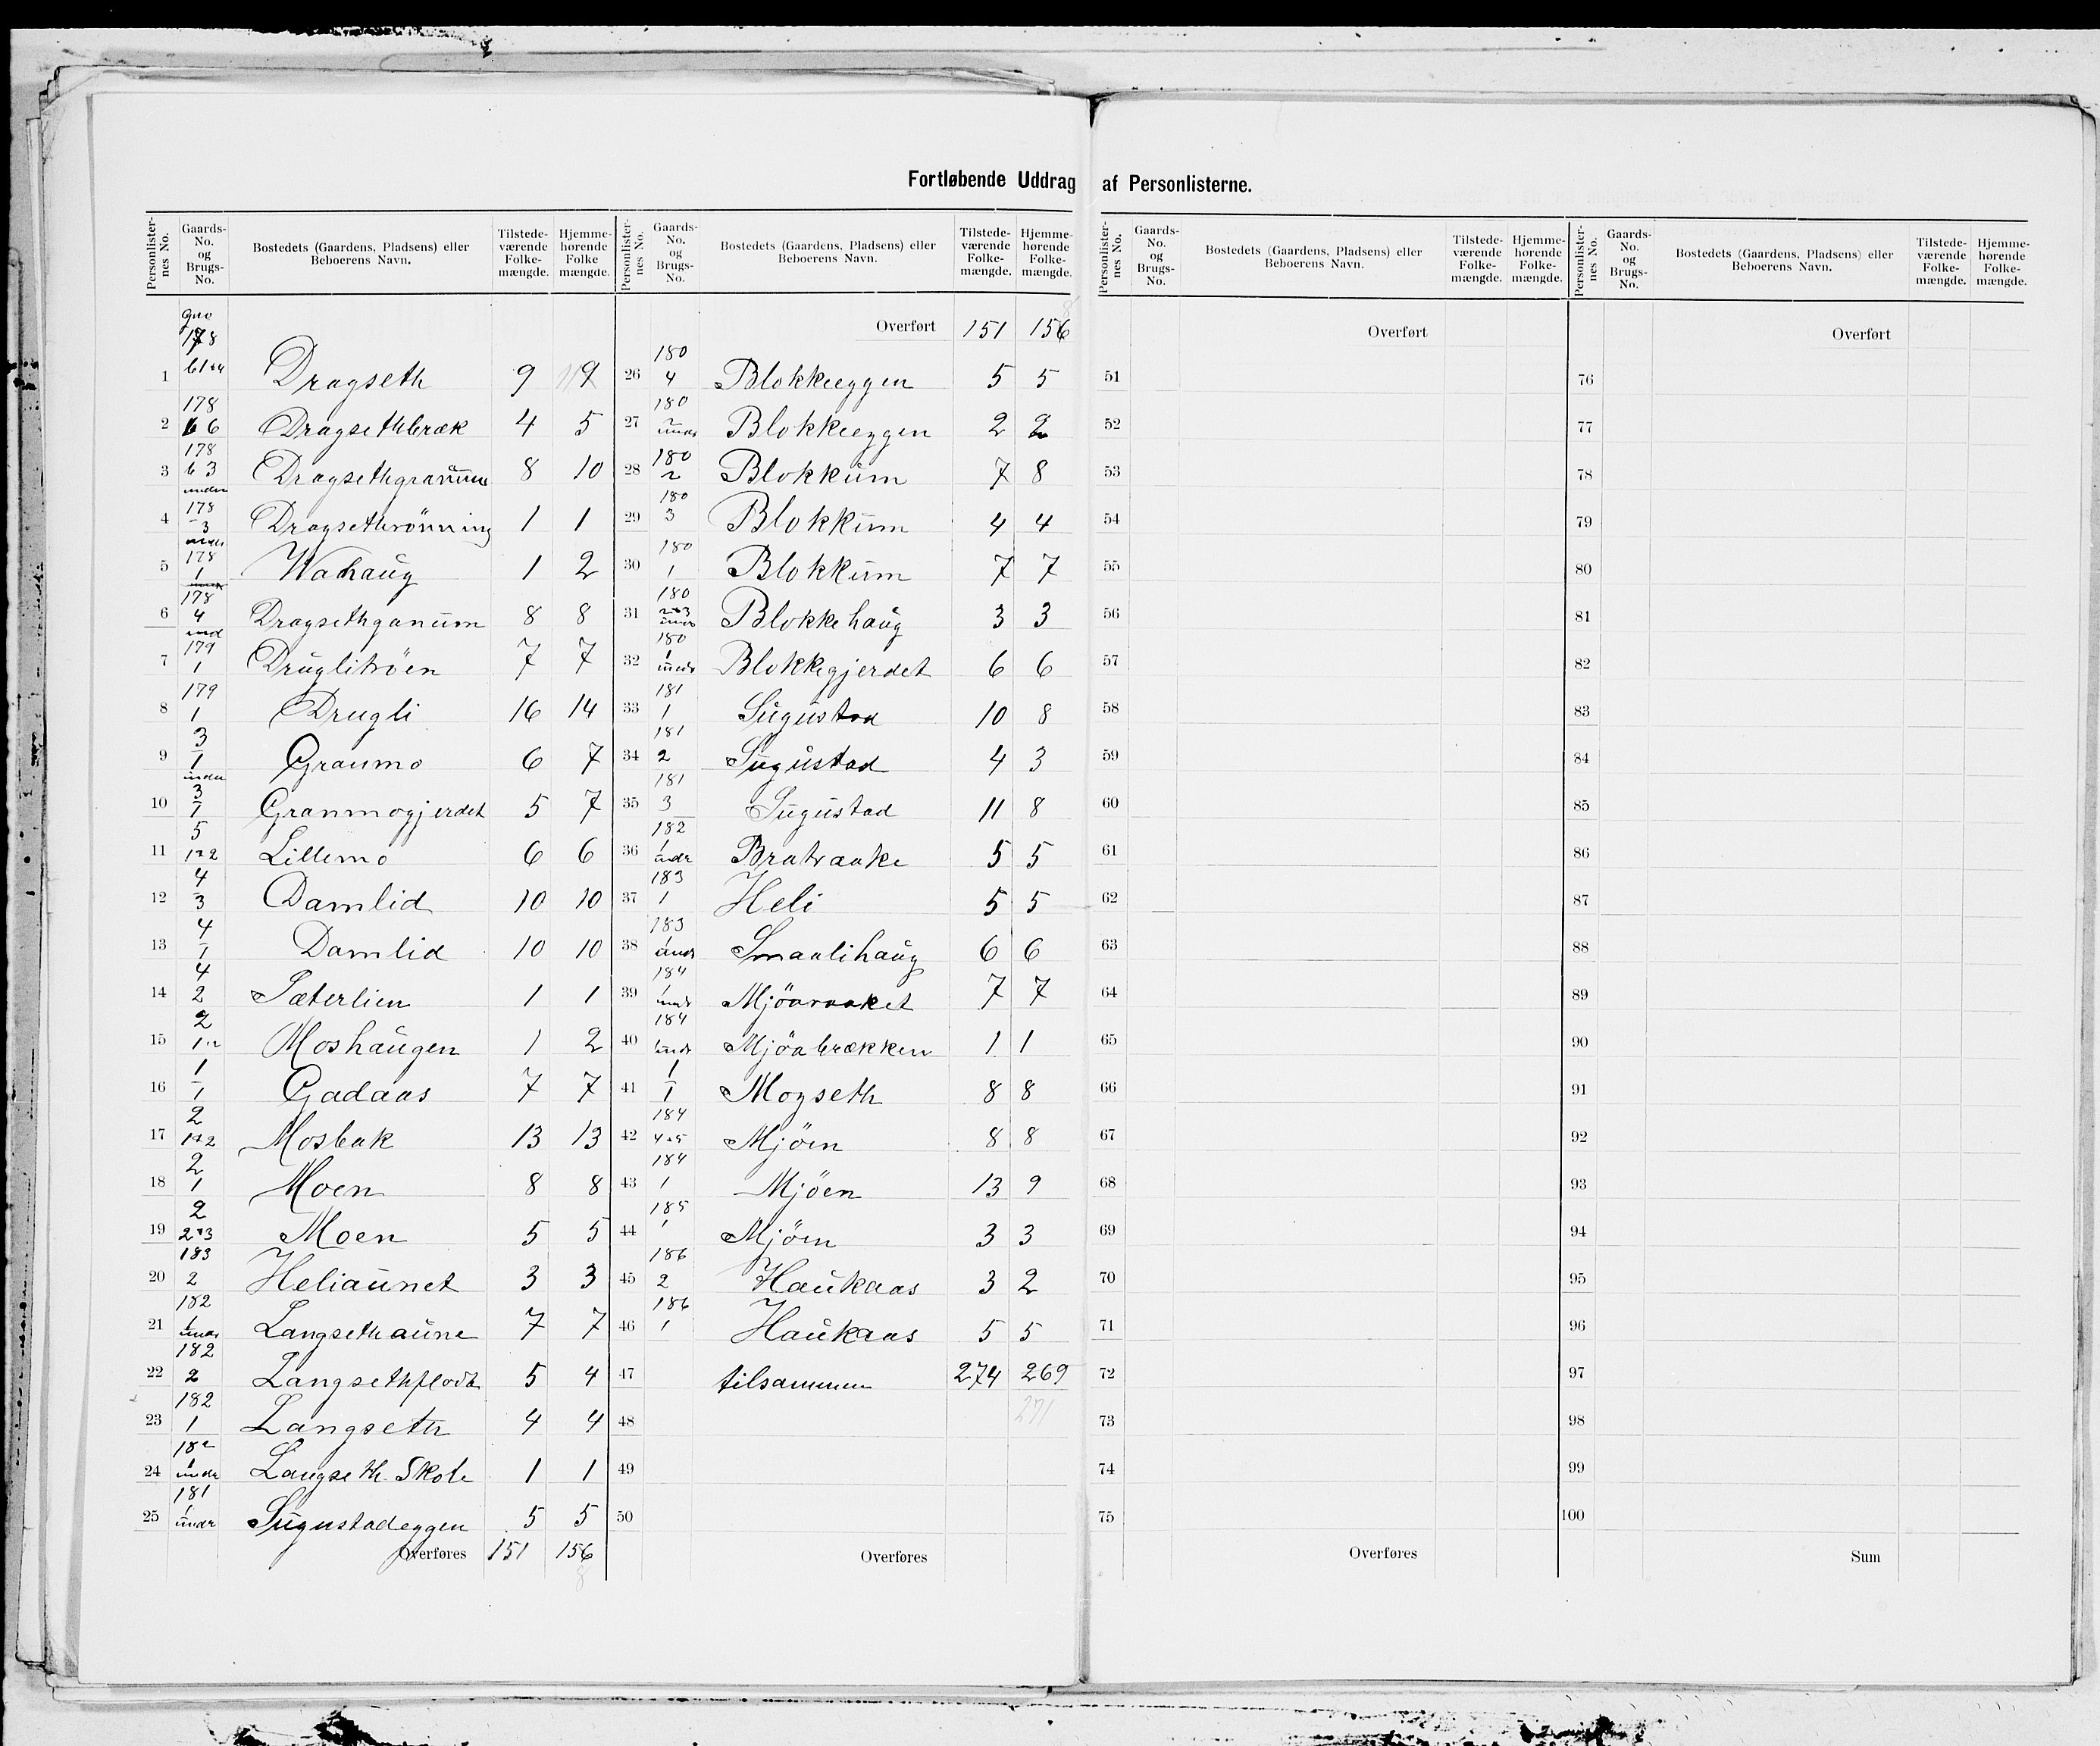 Fortløbende Uddrag af Personlisterne.
Personlister-nes No. Gaards-No. og Brugs-No. Bostedets (Gaardens, Pladsens) eller Beboerens Navn. Tilstede-værende Folke-mængde. Hjemme-hørende Folke mængde.
gno 178
1 b 1+4 Dragseth 9 9
178
2 b 6 Dragsethbræk 4 5
178
3 b 3 under Dragsethgranum 8 10
178
4 3 Dragsethrönning 1 1
178
5 1 Wahaug 1 2
178
6 4 und Dragsethganum 8 8
179
7 1 Druglitröen 7 7
179
8 1 Drugli 16 14
3
9 1 under Granmo 6 7
3
10 1 Granmogjerdet 5 7
5
11 1+2 Lillemo 6 6
4
12 3 Damlid 10 10
4
13 1 Damlid 10 10
4
14 2 Sæterlien 1 1
2
15 1 Moshaugen 1 2
1
16 1 Gadaas 7 7
2
17 1+2 Mosbak 13 13
2
18 1 Moen 8 8
2
19 2+3 Moen 5 5
183
20 2 Heliaunet 3 3
182
21 1 under Langsethaune 7 7
182
22 2 Langseth 5 4
182
23 1 Langseth 4 4
182
24 1 under Langseth Skole 1 1
181
25 1 under Sugustadeggen 5 5
Overføres 151 156
8
Personlister-nes No. Gaards-No. og Brugs-No. Bostedets (Gaardens, Pladsens) eller Beboerens Navn. Tilstede-værende Folke-mængde. Hjemme-hørende Folke-mængde.
Overført 151 156
180
26 4 Blokkeeggen 5 5
180
27 under Blokkeeggen 2 2
180
28 2 Blokkum 7 8
180
29 3 Blokkum 4 4
180
30 1 Blokkum 7 7
180
31 2+3 under Blokkehaug 3 3
180
32 1 under Blokkegjerdet 6 6
181
33 1 Sugustad 10 8
181
34 2 Sugustad 4 3
181
35 3 Sugustad 11 8
182
36 1 under Bratraake 5 5
183
37 1 Heli 5 5
183
38 1 under Smaalihaug 6 6
184
39 1 under Mjöaraaket 7 7
184
40 1 under Mjöabrækken 1 1
1
41 1 Moyseth 8 8
184
42 4+5 Mjöen 8 8
184
43 1 Mjöen 13 9
185
44 1 Mjöen 3 3
186
45 2 Haukaas 3 2
186
46 1 Haukaas 5 5
47 tilsammen 274 269
48 271
49
50
Overføres
Personlister-nes No. Gaards-No. og Brugs-No. Bostedets (Gaardens, Pladsens) eller Beboerens Navn. Tilstede-værende Folke-mængde. Hjemme-hørende Folke-mængde.
Overført
51
52
53
54
55
56
57
58
59
60
61
62
63
64
65
66
67
68
69
70
71
72
73
74
75
Overføres
Personlister-nes No. Gaards-No. og Brugs-No. Bostedets (Gaardens, Pladsens) eller Beboerens Navn. Tilstede-værende Folke-mængde. Hjemme-hørende Folke-mængde.
Overført
76
77
78
79
80
81
82
83
84
85
86
87
88
89
90
91
92
93
94
95
96
97
98
99
100
Sum